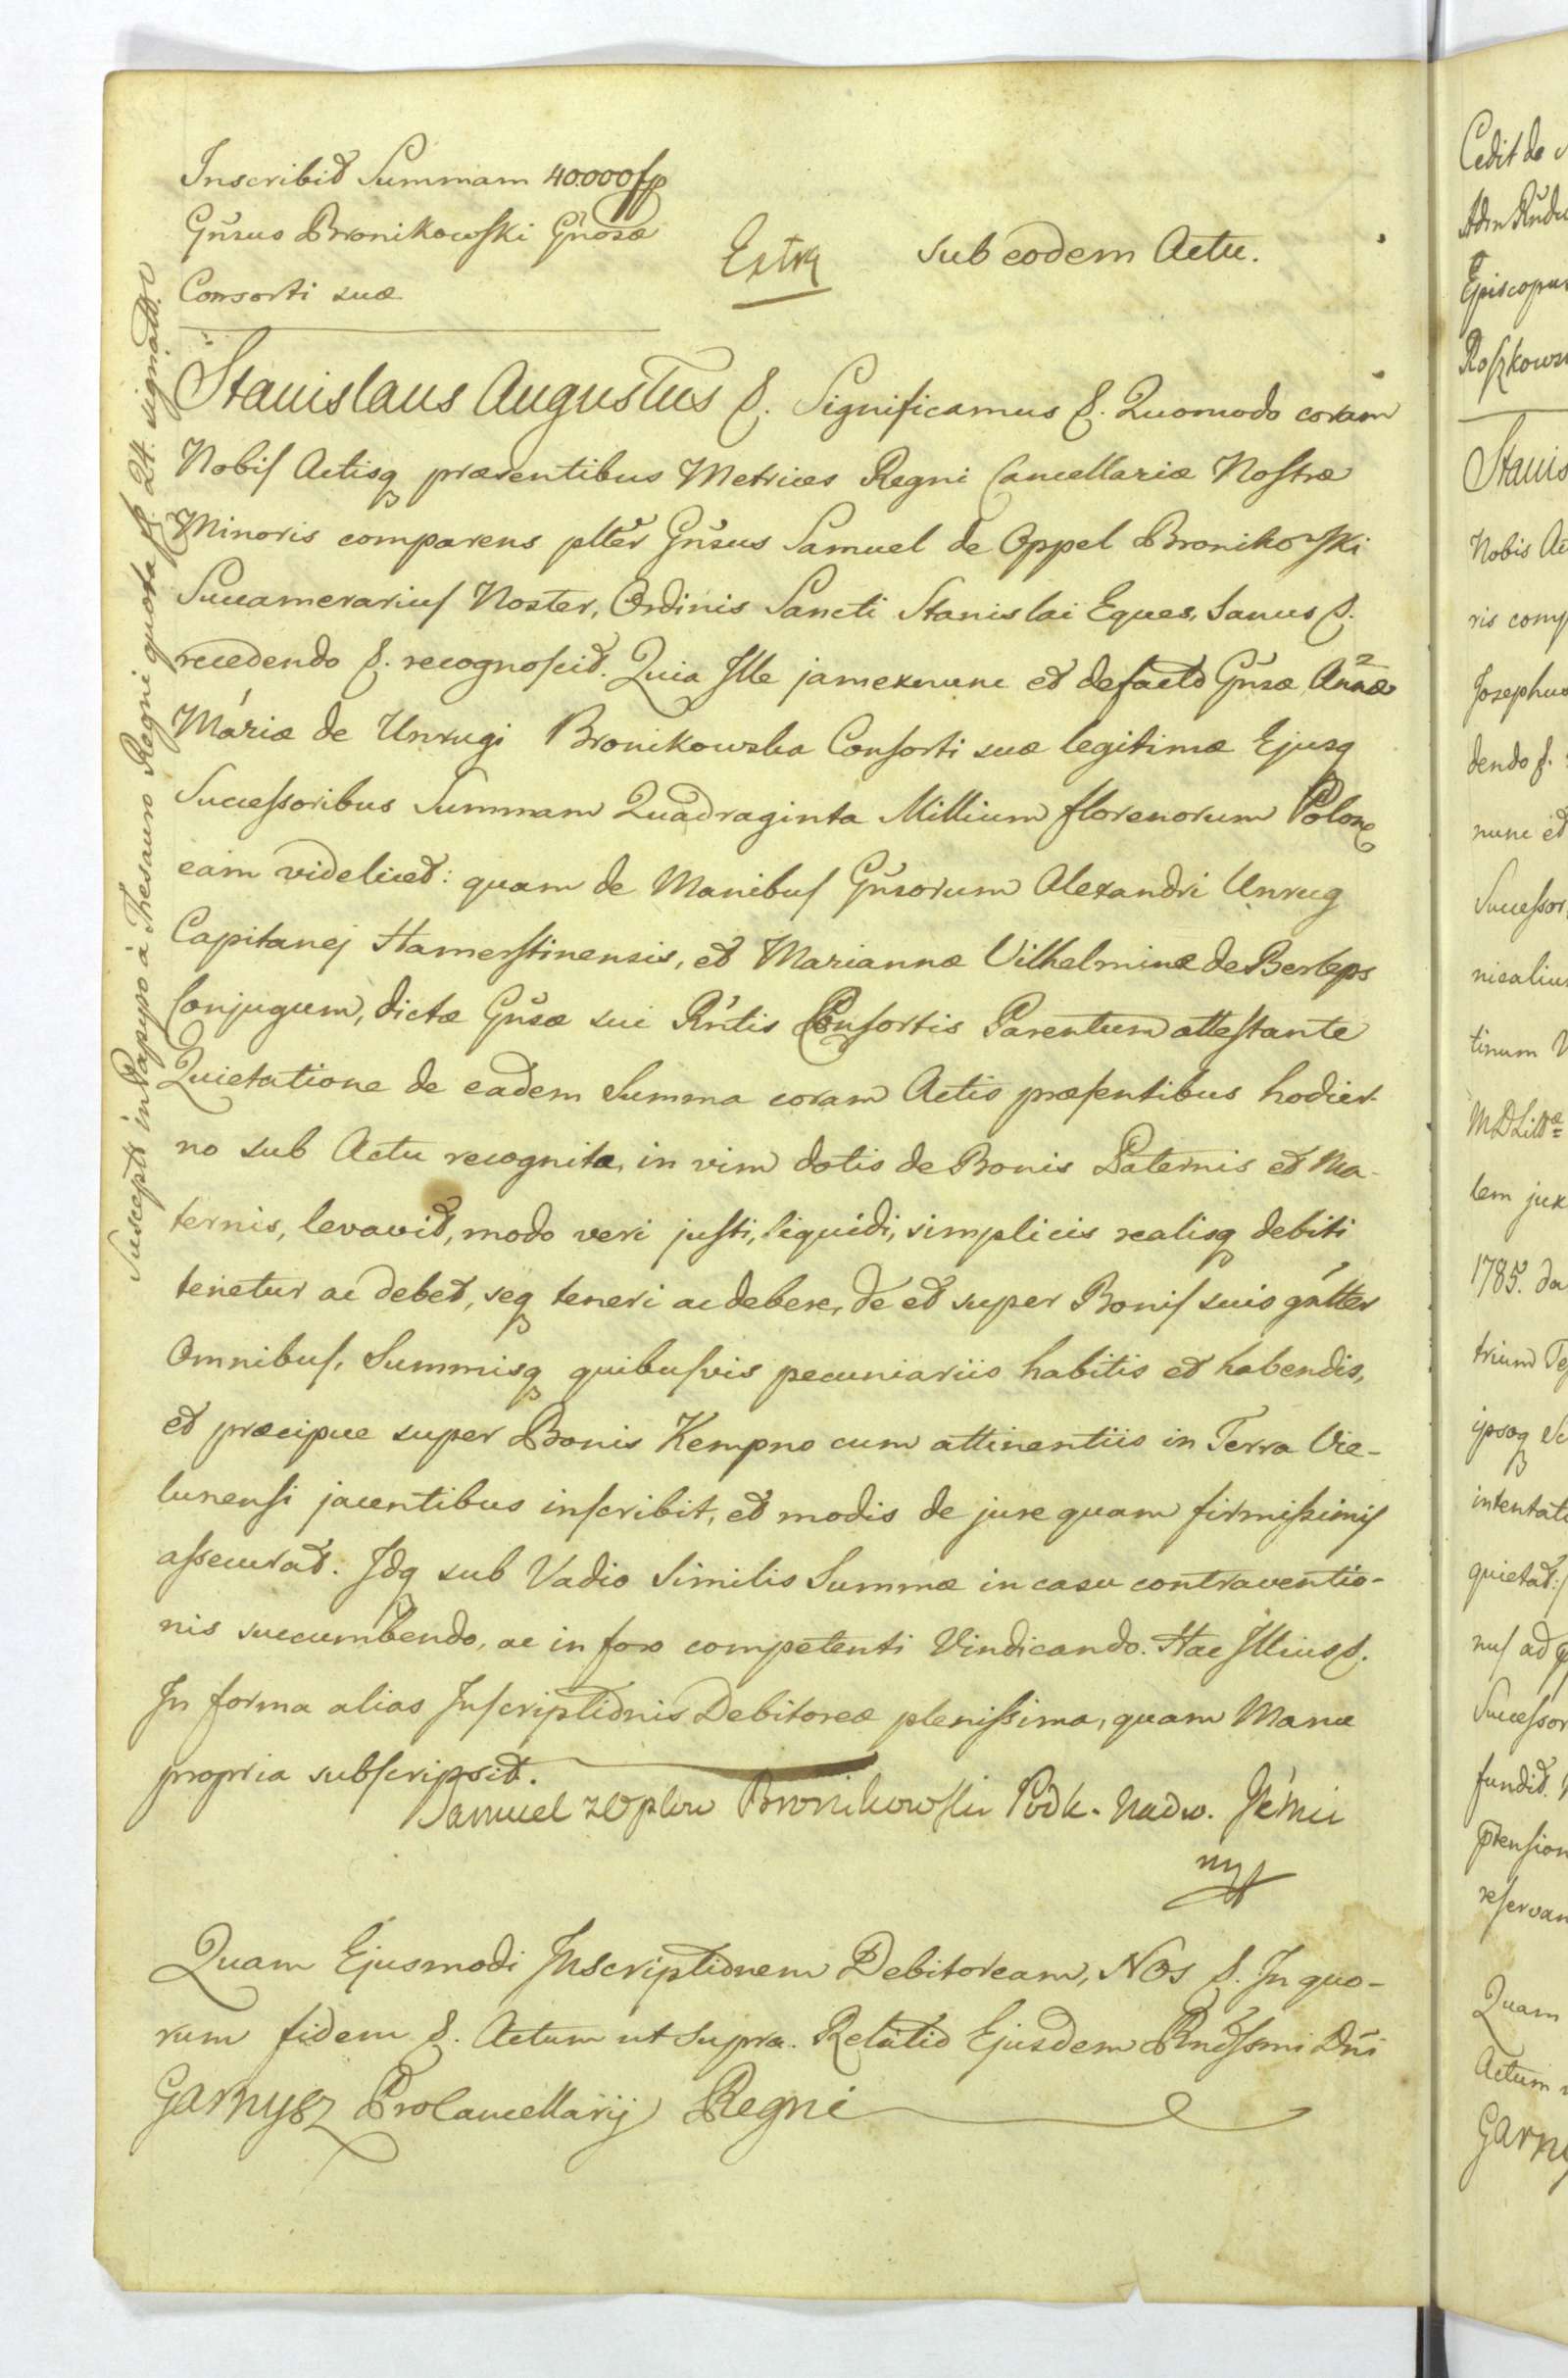 Inscribit Summam 40.000 fp
Gñsus Bronikowski Gñosæ
Consorti suæ
Extra
sub eodem Actu.
Stanislaus Augustus &. Significamus &. Quomodo coram
Nobis Actisq præsentibus Metrices Regni Cancellariæ Nostræ
Minoris comparens plter Gñsus Samuel de Oppel Bronikowski
Succamerarius Noster, Ordinis Sancti Stanislai Eques, Sanus &.
recedendo &. recognoscit. Quia Ille jam exnunc et defacto Gñsæ Annæ
Mariæ de Unrugi Bronikowska Consorti suæ legitimæ Ejusq
Successoribus Summam Quadraginta Millium florenorum Polon
eam videlicet: quam de Manibus Gñsorum Alexandri Unrug
Capitanej Hamerstinensis, et Mariannæ Vilhelminæ de Berleps
Conjugum, dictæ Gñsæ sui Rñtis Consortis Parentum attestante
Quietatione de eadem Summa coram Actis præsentibus hodier-
no sub Actu recognita, in vim dotis de Bonis Paternis et Ma-
ternis, levavit, modo veri justi, liquidi, simplicis realisq debiti
tenetur ac debet, seq teneri ac debere, de et super Bonis suis gñlter
Omnibus, Summisq quibusvis pecuniariis habitis et habendis,
et præcipue super Bonis Kempno cum attinentiis in Terra Vie-
lunensi jacentibus inscribit, et modis de jure quam firmissimis
assecurat. Idq sub Vadio Similis Summæ in casu contraventio-
nis succumbendo, ac in foro competenti Vindicando. Hac Illius &.
In forma alias Inscriptionis Debitoreæ plenissima, quam Manu
propria subscripsit.
Samuel z Oplow Bronikowski Podk. Nadw. JKMci
mp
Quam Ejusmodi Inscriptionem Debitoream, Nos &. In quo-
rum fidem &. Actum ut supra. Relatio Ejusdem Rndssmi Dñi
Garnysz ProCancellarij Regni
Suscepta in Papyro á Thesauro Regni quota gr. 24. signato
Cedit de
Adm Rndu
Episcopus
Roszkows
Stanis
Nobis Ac
ris comp
Josephus
dendo &.
nunc et
Successor
nicaliu
tinum V
lem jux
1785. da
intentat
quietat:
nus ad
Successor
fundit.
ptension
reservan
Quam
Actum
Garny